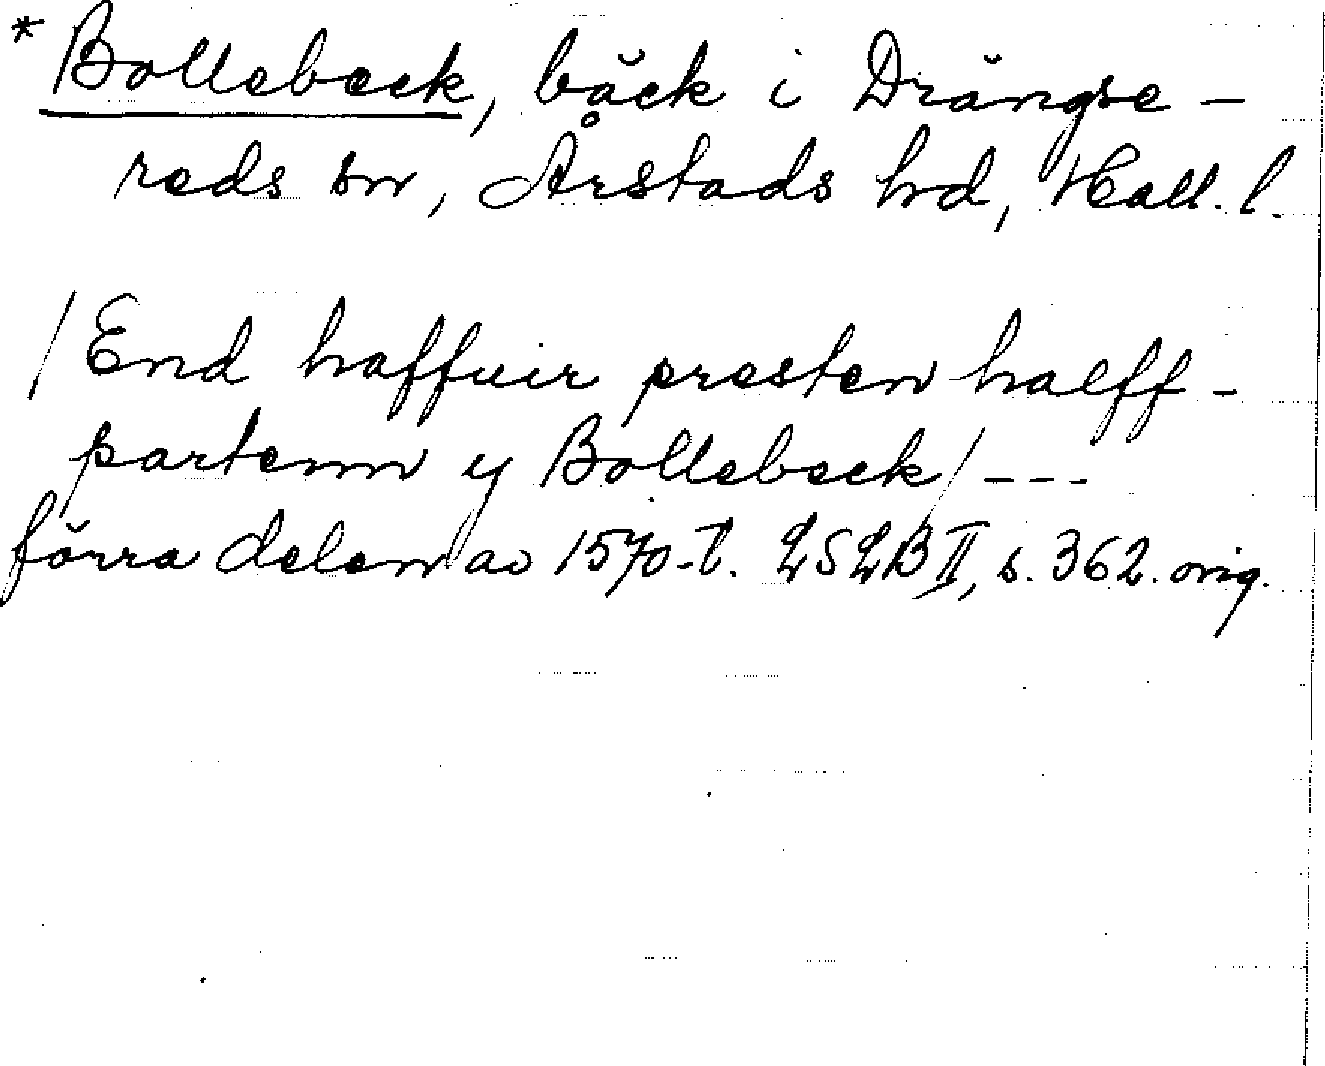 * Bollebeck, bäck i Drängse-
reds sn, Årstads hd, Hall. l.
/ End haffuir presten halff-
partenn y Bollebeck / ---
förra delen av 1570-t. LSLB II, s. 362. orig.